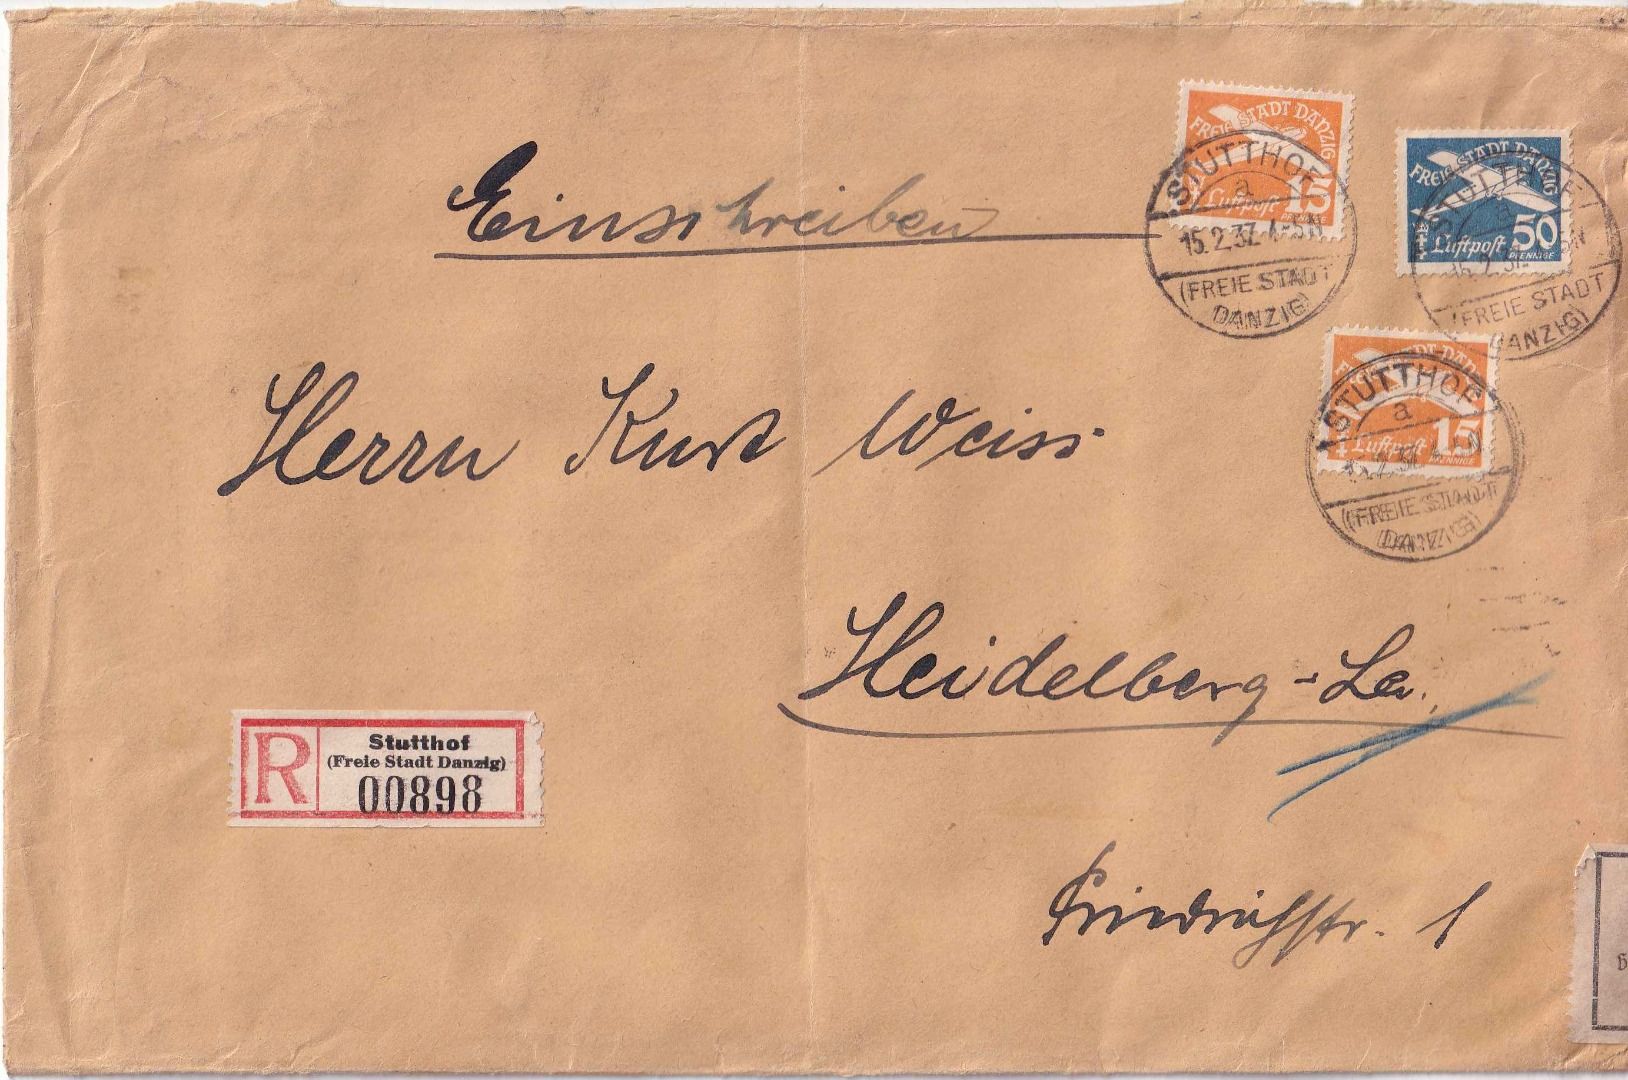 Einschreiben
FREIE STADT DANZIG
Luftpost 15
PFENNIGE
STUTTHOF
a
15.2.37.4-5N
(FREIE STADT
DANZIG)
FREIE STADT DANZIG
Luftpost 50
PFENNIGE
STUTTHOF
a
15.2.37
(FREIE STADT
DANZIG)
Luftpost 15
PFENNIGE
STUTTHOF
a
(FREIE STADT
DANZIG)
Herrn Kurt Weiss
Heidelberg-
R
Stutthof
(Freie Stadt Danzig)
00898
Friedrichstr. 1